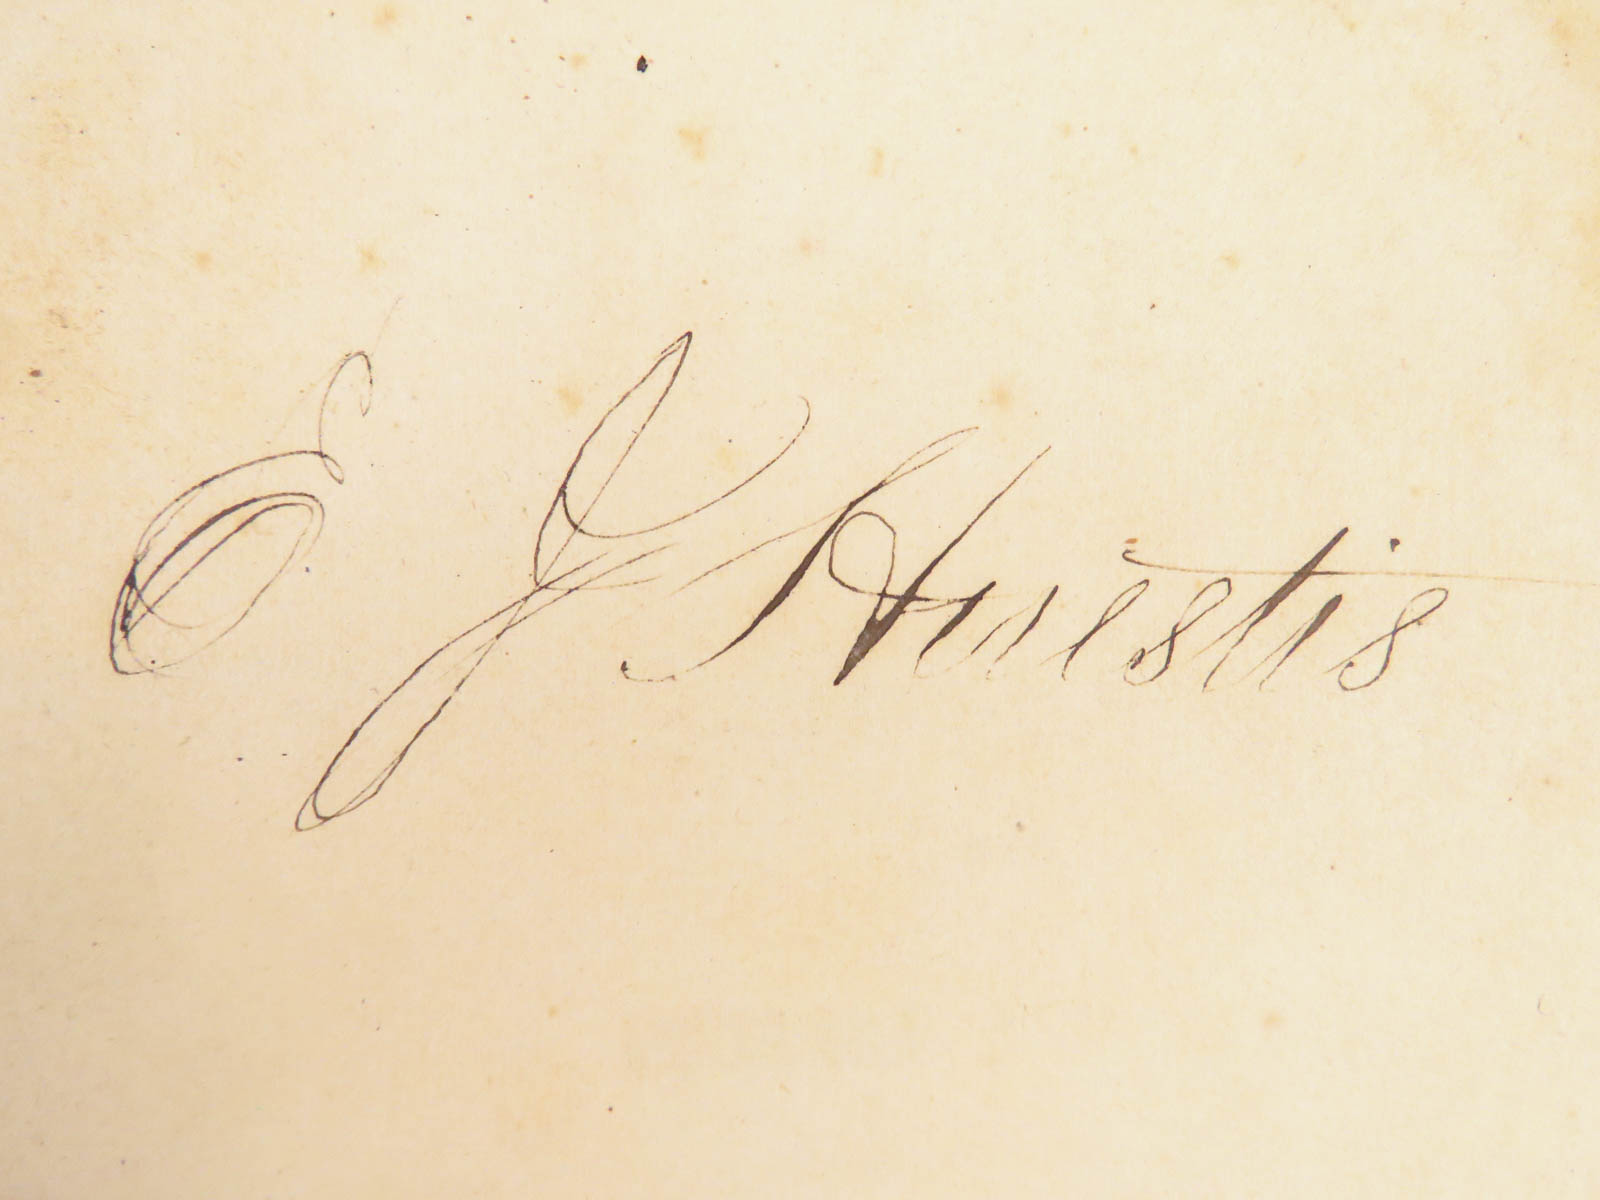 E J Huestis